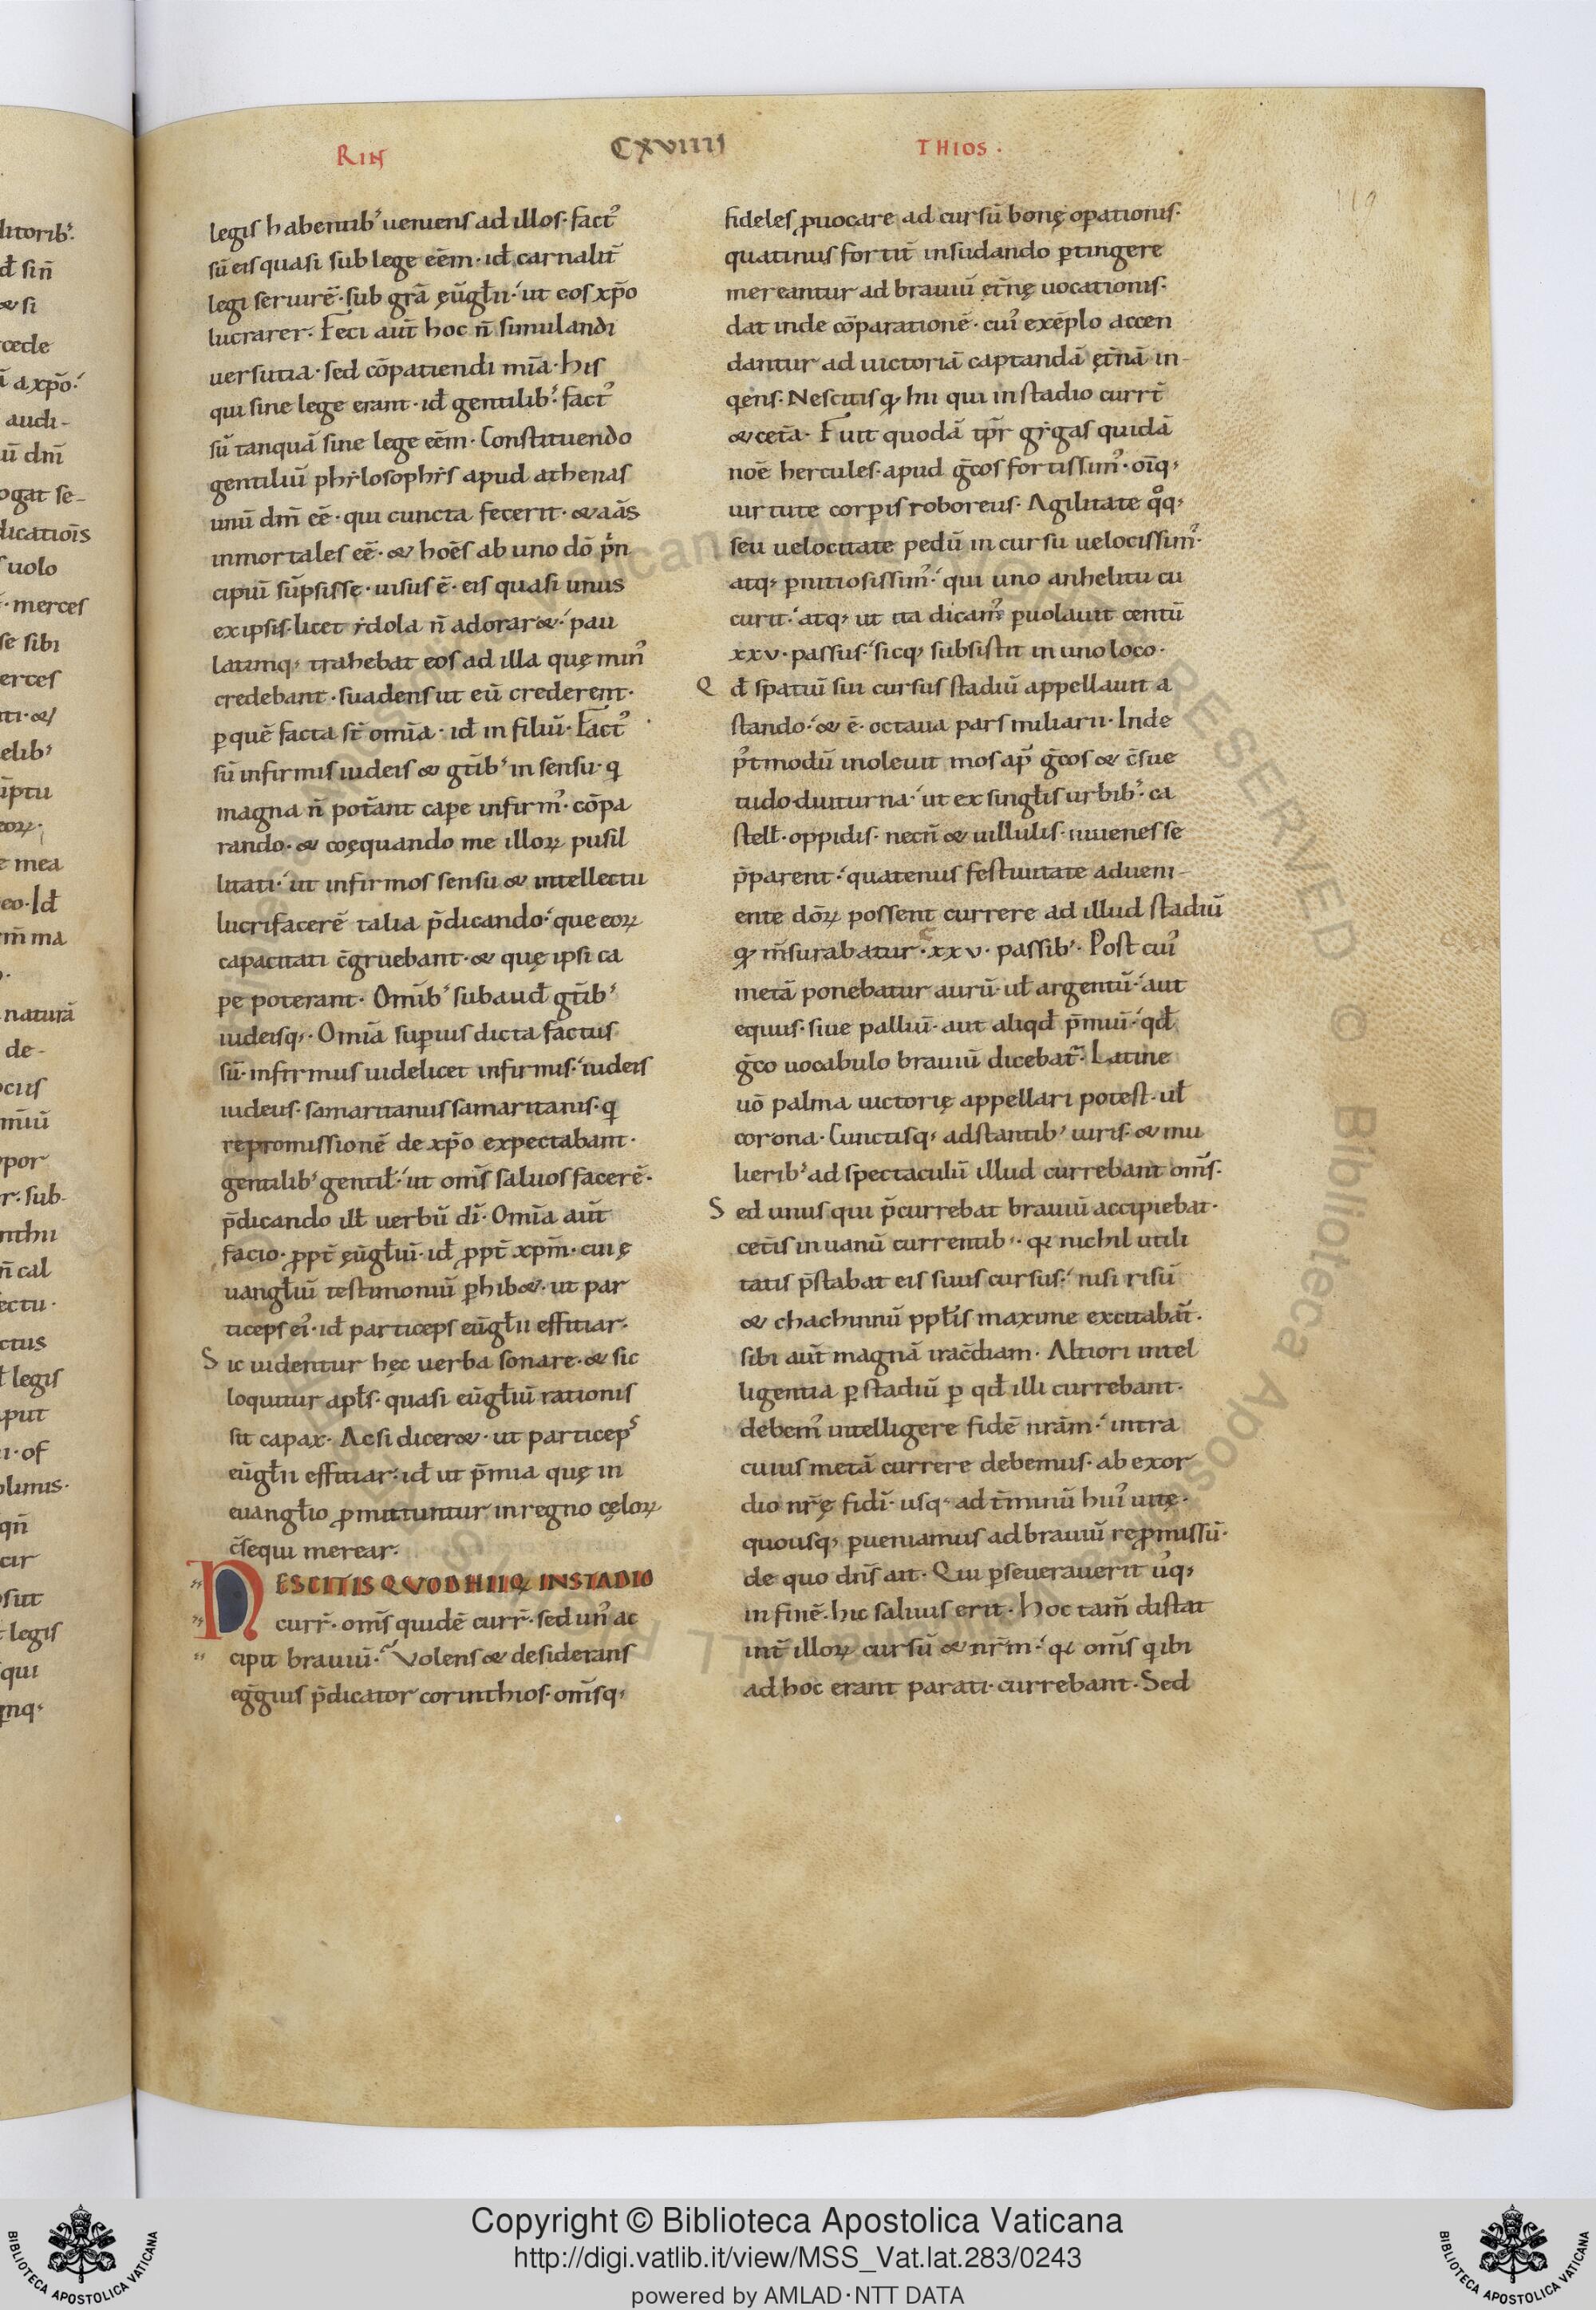 RIN CXVIIII THIOS ·
119
legis habentib' ueniens ad illos · fact'
sū eis quasi sub lege eēm · id̄ carnalit̄
legi seruirē · sub gr̄a eu̅głii · ut eos xp̄o
lucrarer · Feci aut̄ hoc n̄ simulandi
uersutia · sed cōpatiendi mīa · his
qui sine lege erant · id̄ gentilib' · fact'
sū tanquā sine lege eēm · Constituendo
gentiliū phẏlosophẏs apud athenas
unū dm̄ eē · qui cuncta fecerit · & aās
inmortales eē · & hoēs ab uno dō prin
cipiū sūpsisse · uisus ē · eis quasi unus
ex ipsis · licet ẏdola n̄ adorar& · pau
latimq; trahebat eos ad illa quę min'
credebant · suadens ut eū crederent ·
ꝑ quē facta st̄ omīa · id̄ in filiū · Fact'
sū infirmis iudeis & gt̄ib' in sensu · q
magna n̄ pot̄ant cape infirm' · cōpa
rando · & coęquando me illoꝝ pusil
litati · ut infirmos sensu & intellectu
lucrifacerē talia p̄dicando · que eoꝝ
capacitati c̄gruebant · & quę ipsi ca
pe poterant · Omīb' subaud̄ gt̄ib'
iudeisq; · Omīa supius dicta factus
sū · infirmus uidelicet infirmis · iudeis
iudeus · samaritanus samaritanis · q
repromissionē de xp̄o expectabant ·
gentilib' gentił · ut om̄s saluos facerē ·
p̄dicando ilł uerbū dī · Omīa aut̄
facio · ꝓpt̄ eu̅głiū · id̄ ꝓpt̄ xpm̄ · cui ę
uangłiū testimoniū ꝑhib& · ut par
ticeps ei' · id̄ particeps eu̅głii effitiar ·
Sic uidentur hęc uerba sonare · & sic
loquitur apłs · quasi eu̅głiū rationis
sit capax · Ac si dicer& · ut particeps
eu̅głii effitiar · id̄ ut p̄mia quę in
euangłio ꝓmittuntur in regno cęloꝝ
c̄sequi merear ·
NESCITIS QVOD HII IN STADIO
curr̄ · om̄s quidē curr̄ · sed un' ac
cipit brauiū · Volens & desiderans
egḡius p̄dicator corinthios · om̄sq;
fideles ꝓuocare ad cursū bonę opationis ·
quatinus fortit̄ insudando ꝑtingere
mereantur ad brauiū et̄nę uocationis ·
dat inde cōparationē · cui' exēplo accen
dantur ad uictoriā captandā et̄nā in-
qens · Nescitis qđ hii qui in stadio currt̄
& cet̄a · Fuit quodā tp̄r grẏgas quidā
noē hercules · apud gc̄os fortissim' · oīq;
uirtute corpis roboreus · Agilitate qoq;
seu uelocitate pedū in cursu uelocissim' ·
atq; ꝑnitiosissim' · qui uno anhelitu cu
curit · atq; ut ita dicam' ꝑuolauit centū
xxv · passus · sicq; subsistit in uno loco ·
Qd̄ spatiū sui cursus stadiū appellauit a
stando · & ē · octaua pars miliarii · Inde
p'tmodū inoleuit mos ap̄ gc̄os & c̄sue
tudo diuturna · ut ex singłis urbib' · ca
stelł · oppidis · necn̄ & uillulis · iuuenes se
p̄parent · quatenus festiuitate adueni-
ente dōꝝ possent currere ad illud stadiū
qđ m̄surabatur · c xxv · passib' · Post cui'
metā ponebatur aurū · uł argentū · aut
equus · siue palliū · aut aliqd̄ p̄miū · qd̄
gc̄o uocabulo brauiū dicebat̄ · Latine
uō palma uictorię appellari potest · uł
corona · Cunctisq; adstantib' uiris · & mu
lierib' ad spectaculū illud currebant om̄s ·
Sed unus qui p̄currebat brauiū accipiebat ·
cet̄is in uanū currentib' · qꝛ nichil utili
tatis p̄stabat eis suus cursus · nisi risū
& chachinnū ppłis maxime excitabat̄ ·
sibi aut̄ magnā irac̄diam · Altiori intel
ligentia ꝑ stadiū ꝑ qd̄ illi currebant ·
debem' intelligere fidē nrām · intra
cuius metā currere debemus · ab exor
dio nr̄ę fidī · usq; ad t̄minū hui' uitę ·
quousq; ꝑueniamus ad brauiū reꝓmissū ·
de quo dn̄s ait · Qui ꝑseuerauerit u'q;
in finē · hic saluus erit · Hoc tam̄ distat
int̄ illoꝝ cursū & nr̄m · qꝛ om̄s q ibi
ad hoc erant parati · currebant · Sed
Copyright © Biblioteca Apostolica Vaticana
http://digi.vatlib.it/view/MSS_Vat.lat.283/0243
powered by AMLAD·NTT DATA
BIBLIOTECA APOSTOLICA VATICANA
BIBLIOTECA APOSTOLICA VATICANA